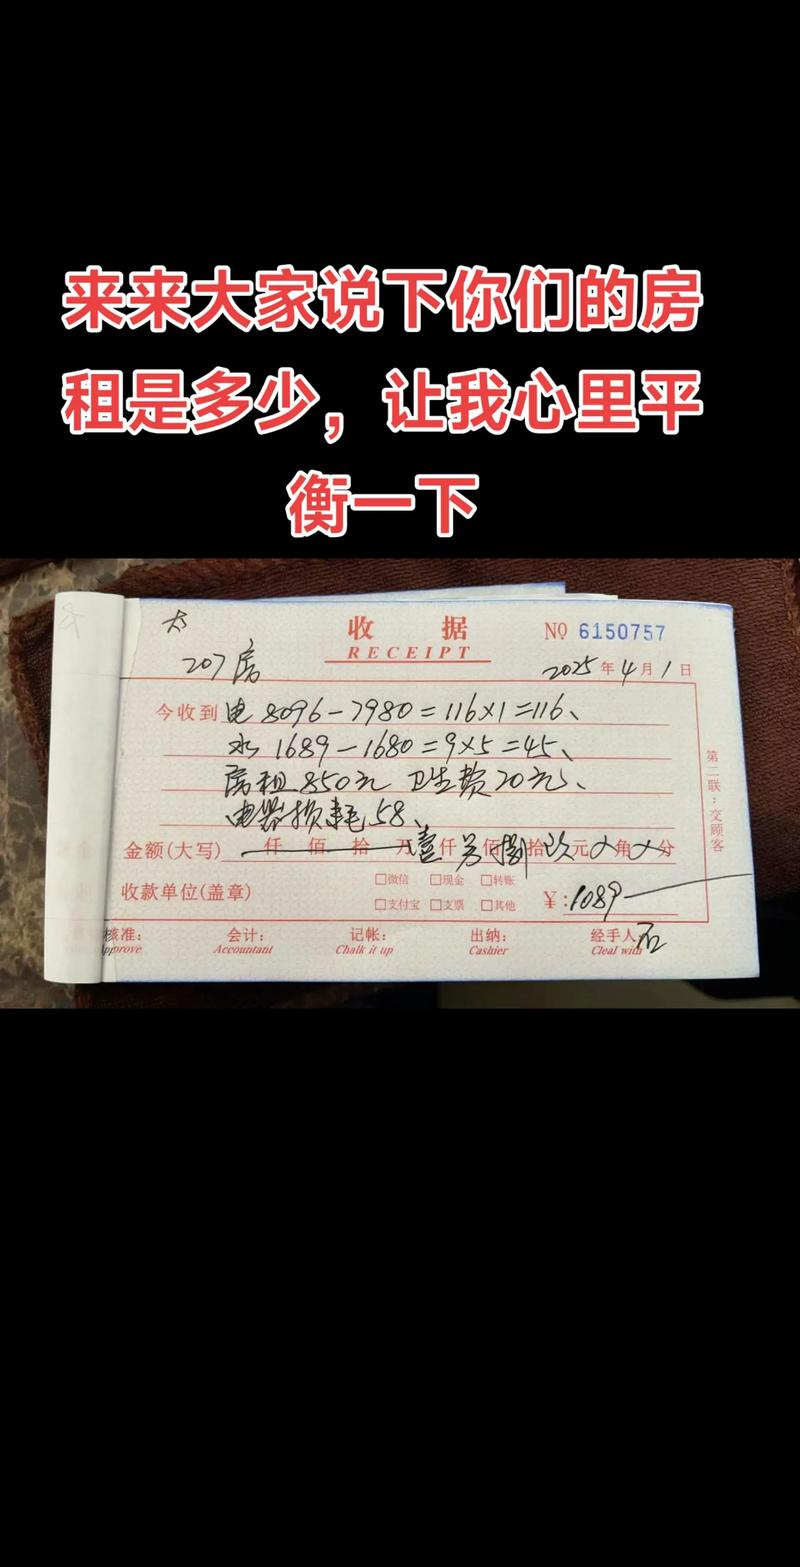 来来大家说下你们的房
租是多少，让我心里平
衡一下
收 据
RECEIPT
NO 6150757
207房
2025年4月1日
今收到 电 8096-7980=116×1=116、
水 1689-1680=9×5=45、
房租850元 卫生费20元、
电器损耗58、
金额(大写) 仟 佰 拾 万壹仟另佰捌拾玖元 角 分
收款单位(盖章)
□微信 □现金 □转账
□支付宝 □支票 □其他
¥:1089
第二联：交顾客
核准: 会计: 记帐: 出纳: 经手人:
Approve Accountant Chalk it up Cashier Cleal with